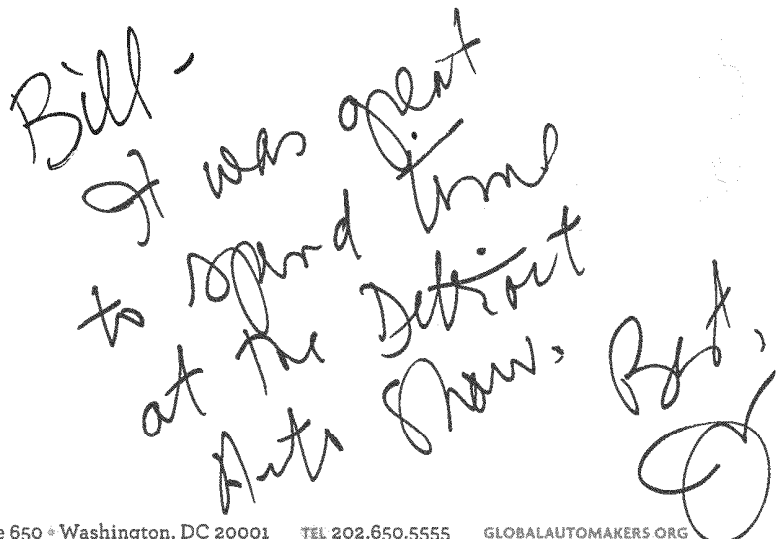 Bill -
It was great
to spend time
at the Detroit
Auto Show.
Best,
e 650 • Washington, DC 20001 TEL 202.650.5555 GLOBALAUTOMAKERS.ORG